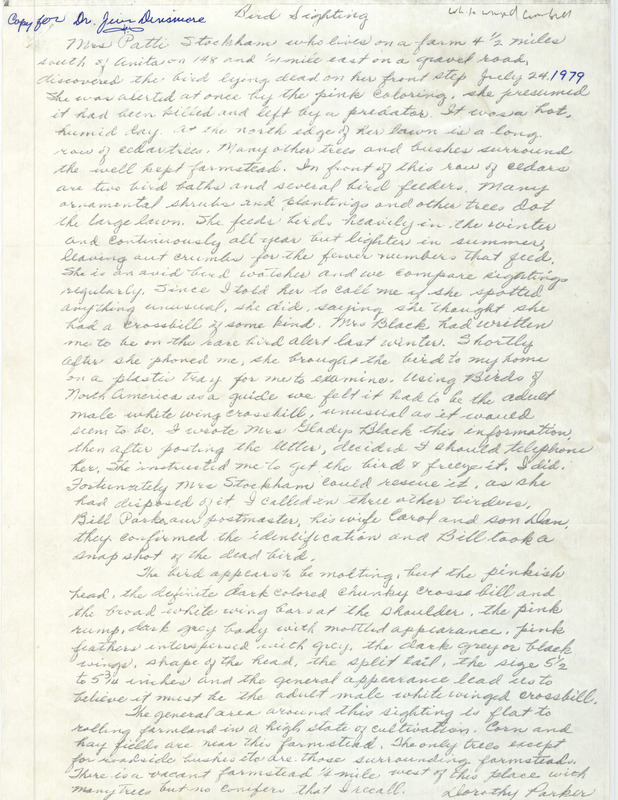 Copy for Dr. Jim Dinsmore
Bird Sighting
white winged Crossbill
Mrs Patti Stockham who lives on a farm 4 1/2 miles
south of Anita on 148 and mile east on a gravel road,
discovered the bird lying dead on her front step July 24, 1979
She was alerted at once by the pink coloring, she presumed
it had been killed and left by a predator. It was a hot,
humid day. At the north edge of her lawn is a long
row of cedar trees. Many other trees and bushes surround
the well kept farmstead. In front of this row of cedars
are two bird baths and several bird feeders. Many
ornamental shrubs and plantings and other trees dot
the large lawn. She feeds birds heavily in the winter
and continuously all year but lighter in summer,
leaving out crumbs for the fewer numbers that feed.
She is an avid bird watcher and we compare sightings
regularly. Since I told her to call me if she spotted
anything unusual, she did, saying she thought she
had a crossbill of some kind. Mrs Black had written
me to be on the rare bird alert last winter. Shortly
after she phoned me, she brought the bird to my home
on a plastic tray for me to examine. Using Birds of
North America as a guide we felt it had to be the adult
male white wing crossbill, unusual as it would
seem to be. I wrote Mrs Gladys Black this information,
then after posting the letter, decided I should telephone
her. She instructed me to get the bird & freeze it. I did.
Fortunately Mrs Stockham could rescue it, as she
had disposed of it. I called in three other birders,
Bill Parker, our postmaster, his wife Carol and son Dan,
they confirmed the identification and Bill took a
snapshot of the dead bird.
The bird appears to be molting, but the pinkish
head, the definite dark colored chunky cross bill and
the broad white wing bars at the shoulder, the pink
rump, dark grey body with mottled appearance, pink
feathers interspersed with grey, the dark grey or black
wings, shape of the head, the split tail, the size 5 1/2
to 5 3/4 inches and the general appearance lead us to
believe it must be the adult male white winged crossbill.
The general area around this sighting is flat to
rolling farmland in a high state of cultivation. Corn and
hay fields are near this farmstead. The only trees except
for roadside bushes etc are those surrounding farmsteads.
There is a vacant farmstead mile west of this place with
many trees but no conifers that I recall. Dorothy Parker